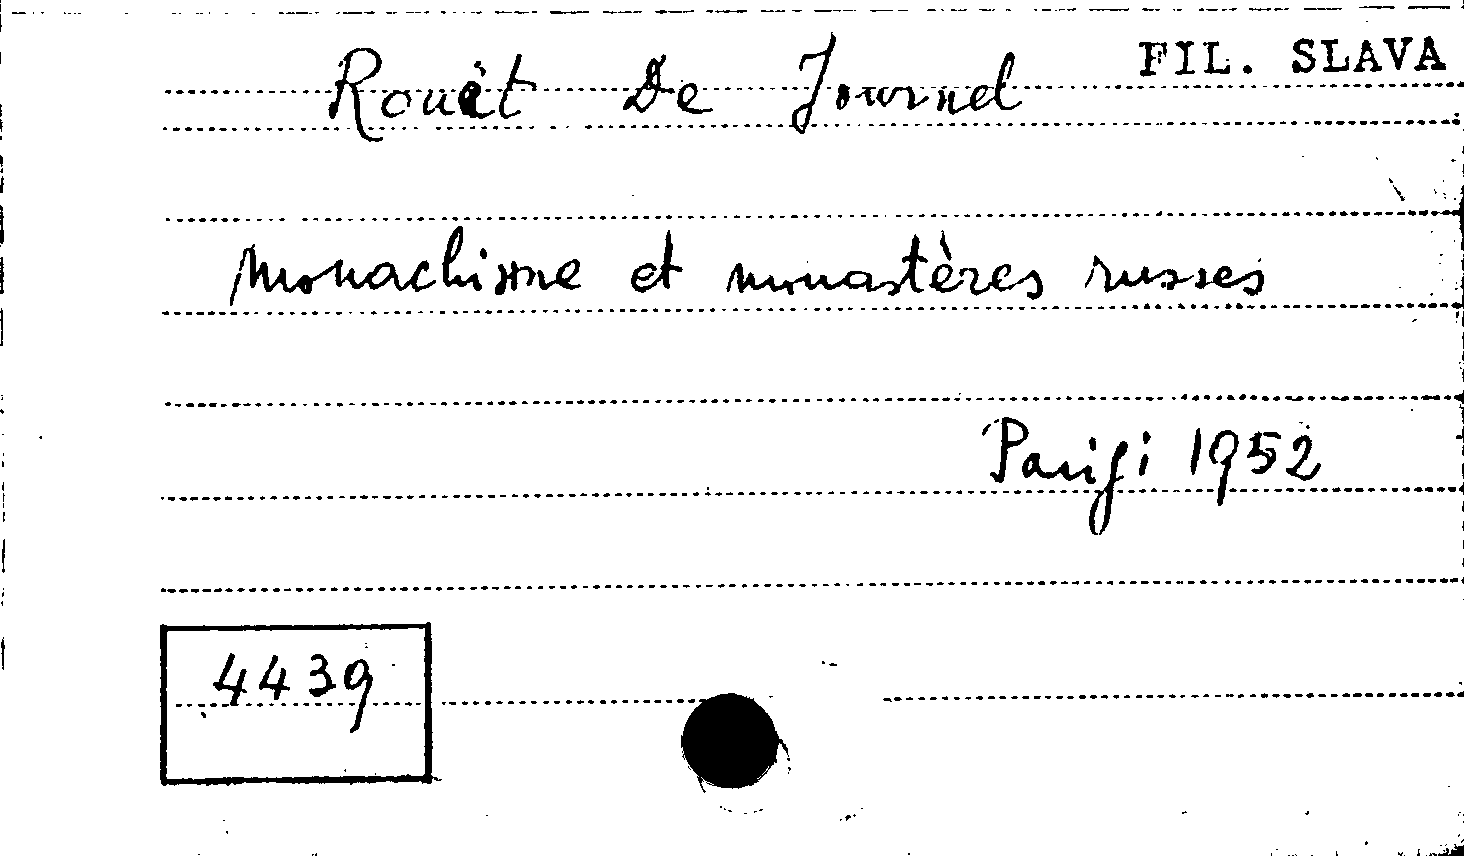 FIL. SLAVA
Rouët De Journel
Monachisme et monastères russes
Parigi 1952
4439